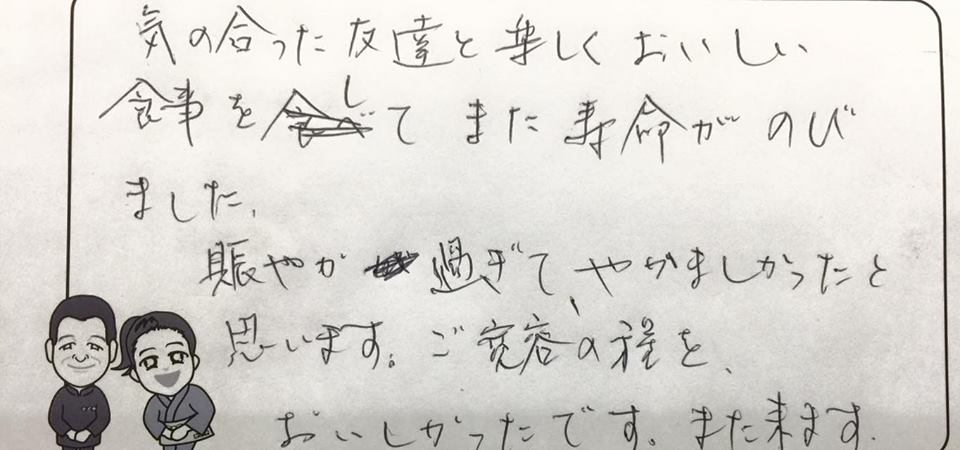 気の合った友達と楽しくおいしい
食事をして また寿命がのび
ました、
賑やか過ぎて、やかましかったと
思います。ご寛容の程を、
おいしかったです。また来ます.